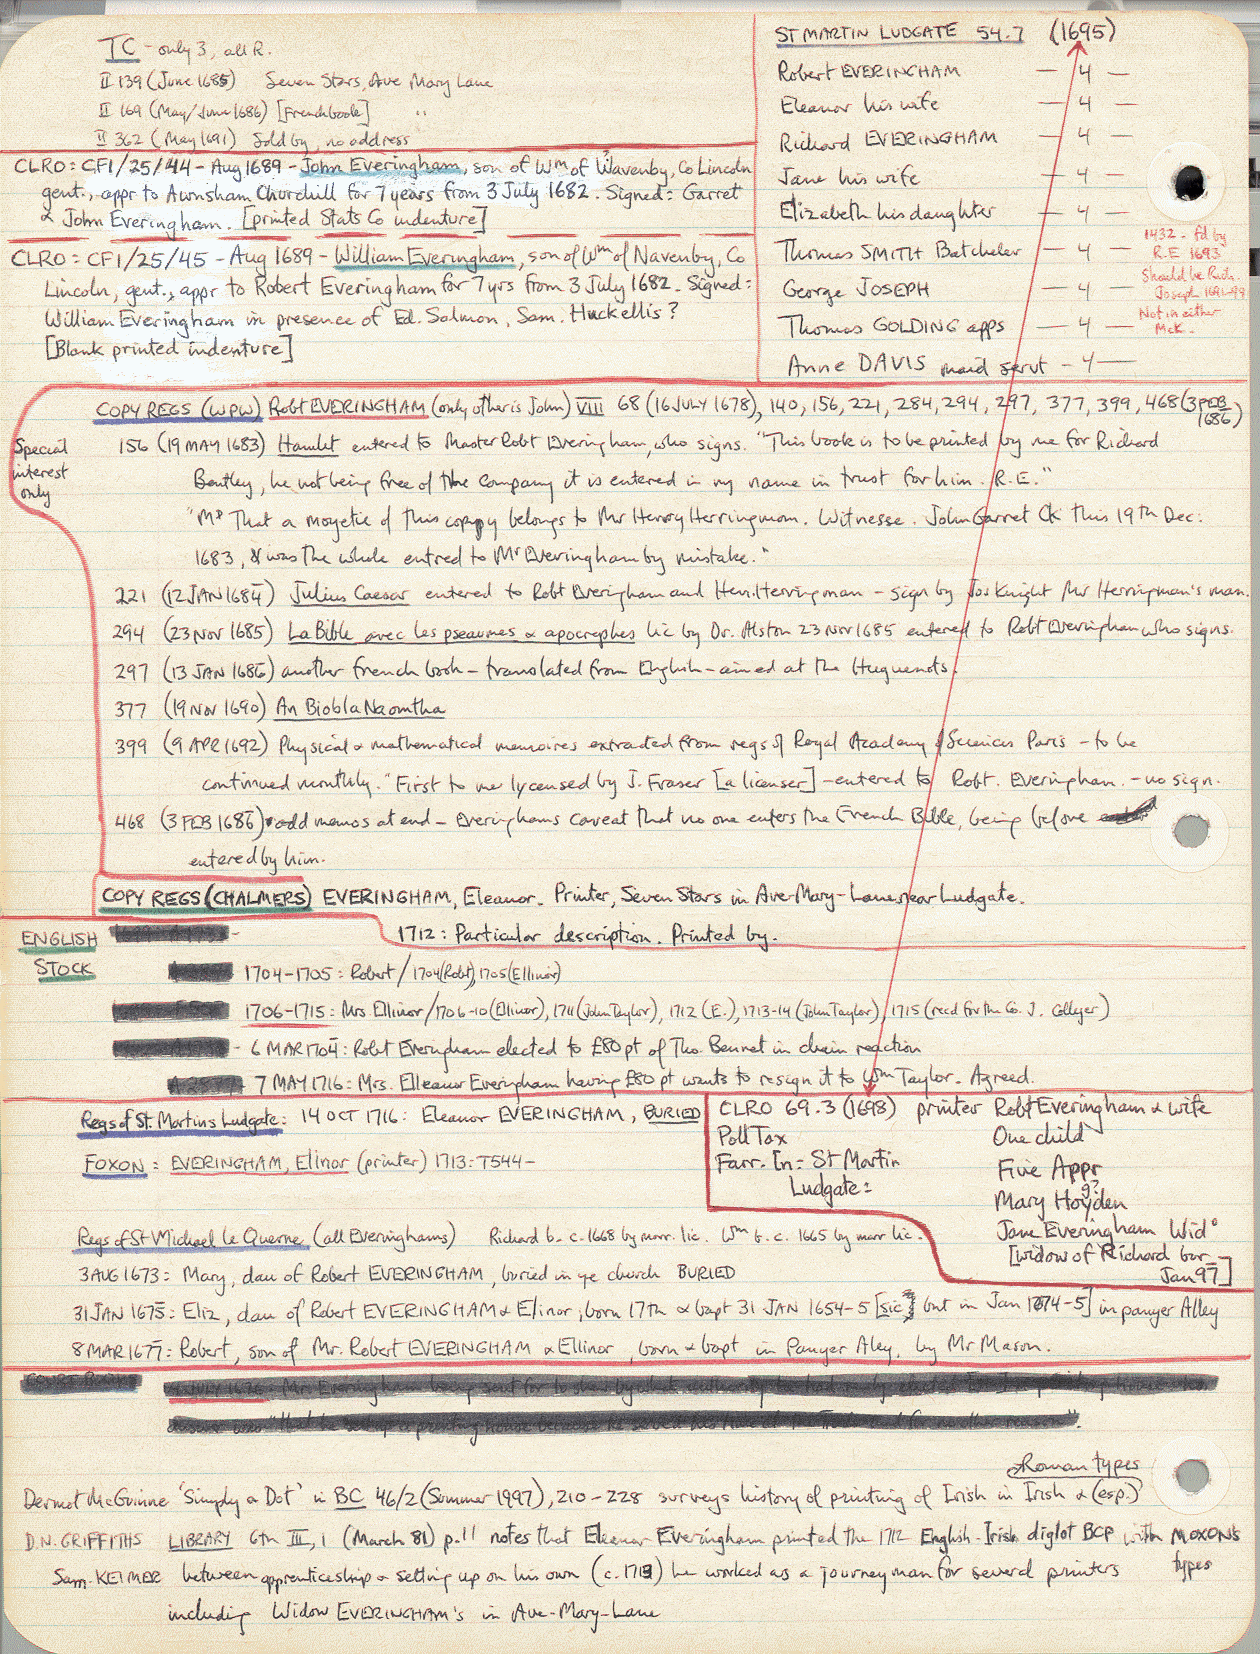 TC - only 3, all R.
II 139 (June 1685) Seven Stars, Ave Mary Lane
II 169 (May/June 1686) [French book] "
II 362 (May 1691) Sold by, no address
ST MARTIN LUDGATE 54.7 (1695)
Robert EVERINGHAM — 4 —
Eleanor his wife — 4 —
Richard EVERINGHAM — 4 —
Jane his wife — 4 —
Elizabeth his daughter — 4 —
Thomas SMITH Batcheler — 4 —
George JOSEPH — 4 —
Thomas GOLDING apps — 4 —
Anne DAVIS maid servt - 4 —
1432 - fd by
R.E 1693
Should be Rich.
Joseph 1691-99
Not in either
McK.
CLRO: CF1/25/44 - Aug 1689 - John Everingham, son of Wm of Wavenby, Co Lincoln
gent., appr to Awnsham Churchill for 7 years from 3 July 1682. Signed: Garret
& John Everingham. [printed Stats Co indenture]
CLRO: CF1/25/45 - Aug 1689 - William Everingham, son of Wm of Navenby, Co
Lincoln, gent., appr to Robert Everingham for 7 yrs from 3 July 1682. Signed:
William Everingham in presence of Ed. Salmon, Sam. Huckellis?
[Blank printed indenture]
COPY REGS (WPW) Robt EVERINGHAM (only other is John) VIII 68 (16 JULY 1678), 140, 156, 221, 284, 294, 297, 377, 399, 468 (3 FEB 1686)
Special
interest
only
156 (19 MAY 1683) Hamlet entered to Master Robt Everingham, who signs. "This book is to be printed by me for Richard
Bentley, he not being free of the Company it is entered in my name in trust for him. R.E."
"Md That a moyetie of this coppy belongs to Mr Henry Herringman. Witnesse. John Garret Ck this 19th Dec:
1683, & was the whole entred to Mr Everingham by mistake."
221 (12 JAN 1684) Julius Caesar entered to Robt Everingham and Hen. Herringman - sign by Jos Knight Mr Herringman's man.
294 (23 NOV 1685) La Bible avec les pseaumes & apocrephes lic by Dr. Alston 23 Nov 1685 entered to Robt Everingham who signs.
297 (13 JAN 1686) another French book - translated from English - aimed at the Huguenots.
377 (19 NOV 1690) An Biobla Naomtha
399 (9 APR 1692) Physical & mathematical memoires extracted from regs of Royal Academy of Sciences Paris - to be
continued monthly. "First to me lycensed by J. Fraser [a licenser] - entered to Robt. Everingham. - no sign.
468 (3 FEB 1686) odd memos at end - Everinghams caveat that no one enters the French Bible, being before
entered by him.
COPY REGS (CHALMERS) EVERINGHAM, Eleanor. Printer, Seven Stars in Ave-Mary-Lane near Ludgate.
1712: Particular description. Printed by.
ENGLISH
STOCK
1704-1705: Robert / 1704 (Robt), 1705 (Ellinor)
1706-1715: Mrs Ellinor / 1706-10 (Ellinor), 1711 (John Taylor), 1712 (E.), 1713-14 (John Taylor), 1715 (recd for the Co. J. Collyer)
- 6 MAR 1704: Robt Everingham elected to £80 pt of Tho. Bennet in chain reaction
7 MAY 1716: Mrs. Elleanor Everingham having £80 pt wants to resign it to Wm Taylor. Agreed.
Regs of St. Martins Ludgate: 14 OCT 1716: Eleanor EVERINGHAM, BURIED
FOXON: EVERINGHAM, Elinor (printer) 1713: T544-
CLRO 69.3 (1698) printer Robt Everingham & wife
Poll Tax One child
Farr. In = St Martin Five Appr
Ludgate: Mary Hoyden
g?
Jane Everingham Wid°
[widow of Richard bur
Jan 97]
Regs of St Michael le Querne (all Everinghams) Richard b. c. 1668 by marr. lic. Wm b. c. 1665 by marr lic.
3 AUG 1673: Mary, dau of Robert EVERINGHAM, buried in ye church BURIED
31 JAN 1675: Eliz, dau of Robert EVERINGHAM & Elinor, born 17th & bapt 31 JAN 1654-5 [sic, but in Jan 1674-5] in panyer Alley
8 MAR 1677: Robert, son of Mr. Robert EVERINGHAM & Ellinor, born & bapt in Panyer Aley, by Mr Mason.
Roman types
Dermot McGuinne 'Simply a Dot' in BC 46/2 (Summer 1997), 210-228 surveys history of printing of Irish in Irish & (esp.)
D.N. GRIFFITHS LIBRARY 6th III, 1 (March 81) p.11 notes that Eleanor Everingham printed the 1712 English-Irish diglot BCP with MOXON'S
types
Sam. KEIMER between apprenticeship & setting up on his own (c. 1713) he worked as a journeyman for several printers
including Widow EVERINGHAM's in Ave-Mary-Lane